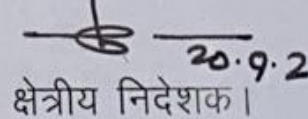 20.9.2
क्षेत्रीय निदेशक।